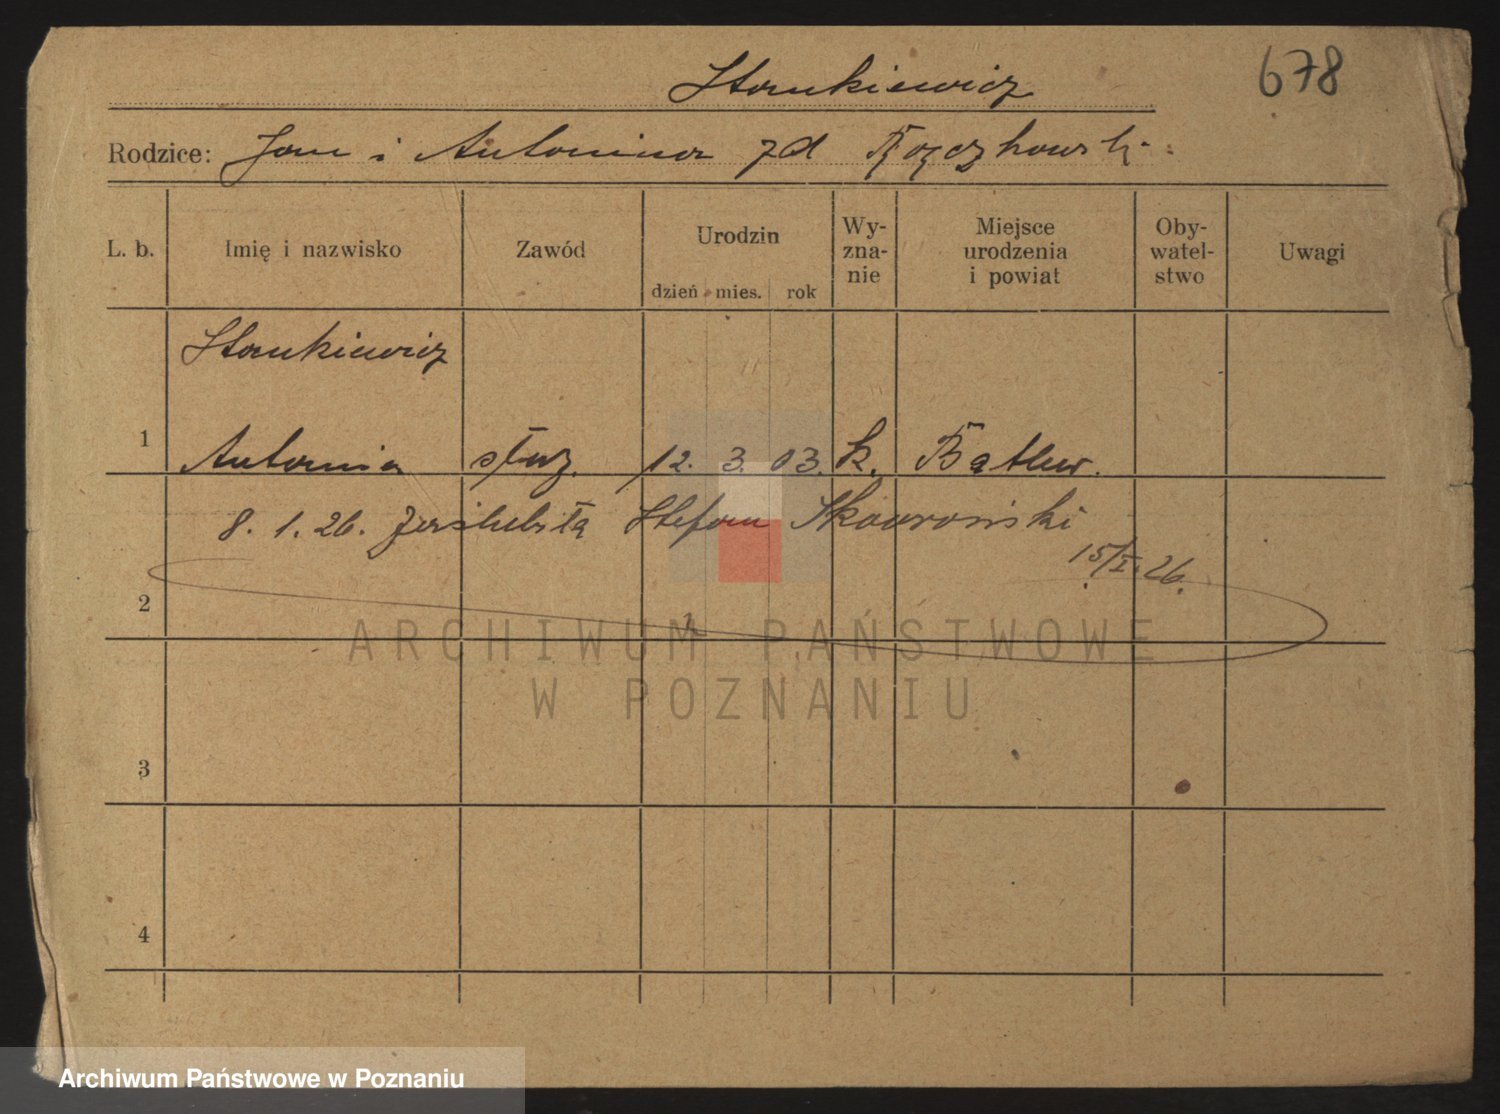 Stankiewicz 678
Rodzice: Jan i Antonina zd
L. b. Imię i nazwisko Zawód Urodzin dzień mies. rok Wy-zna-nie Miejsce urodzenia i powiat Oby-watel-stwo Uwagi
Stankiewicz
1 Antonia służ. 12. 3. 03. k.
8. 1. 26. zaślubiła Stefan Skowroński
15/I. 26.
2
ARCHIWUM PAŃSTWOWE
W POZNANIU
3
4
Archiwum Państwowe w Poznaniu